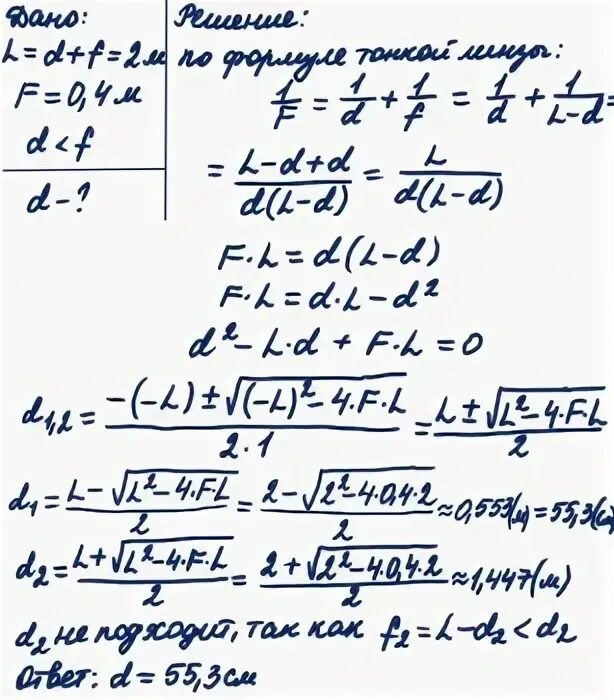 Дано:
L = d + f = 2 м
F = 0,4 м
d < f
d - ?
Решение:
по формуле тонкой линзы:
1/F = 1/d + 1/f = 1/d + 1/(L-d) =
= (L-d+d)/(d(L-d)) = L/(d(L-d))
F·L = d(L-d)
F·L = d·L - d²
d² - L·d + F·L = 0
d₁,₂ = (-(-L) ± √((-L)² - 4·F·L))/(2·1) = (L ± √(L² - 4·F·L))/2
d₁ = (L - √(L² - 4·F·L))/2 = (2 - √(2² - 4·0,4·2))/2 ≈ 0,553 (м) = 55,3 (с
d₂ = (L + √(L² - 4·F·L))/2 = (2 + √(2² - 4·0,4·2))/2 ≈ 1,447 (м)
d₂ не подходит, так как f₂ = L - d₂ < d₂
Ответ: d = 55,3 см